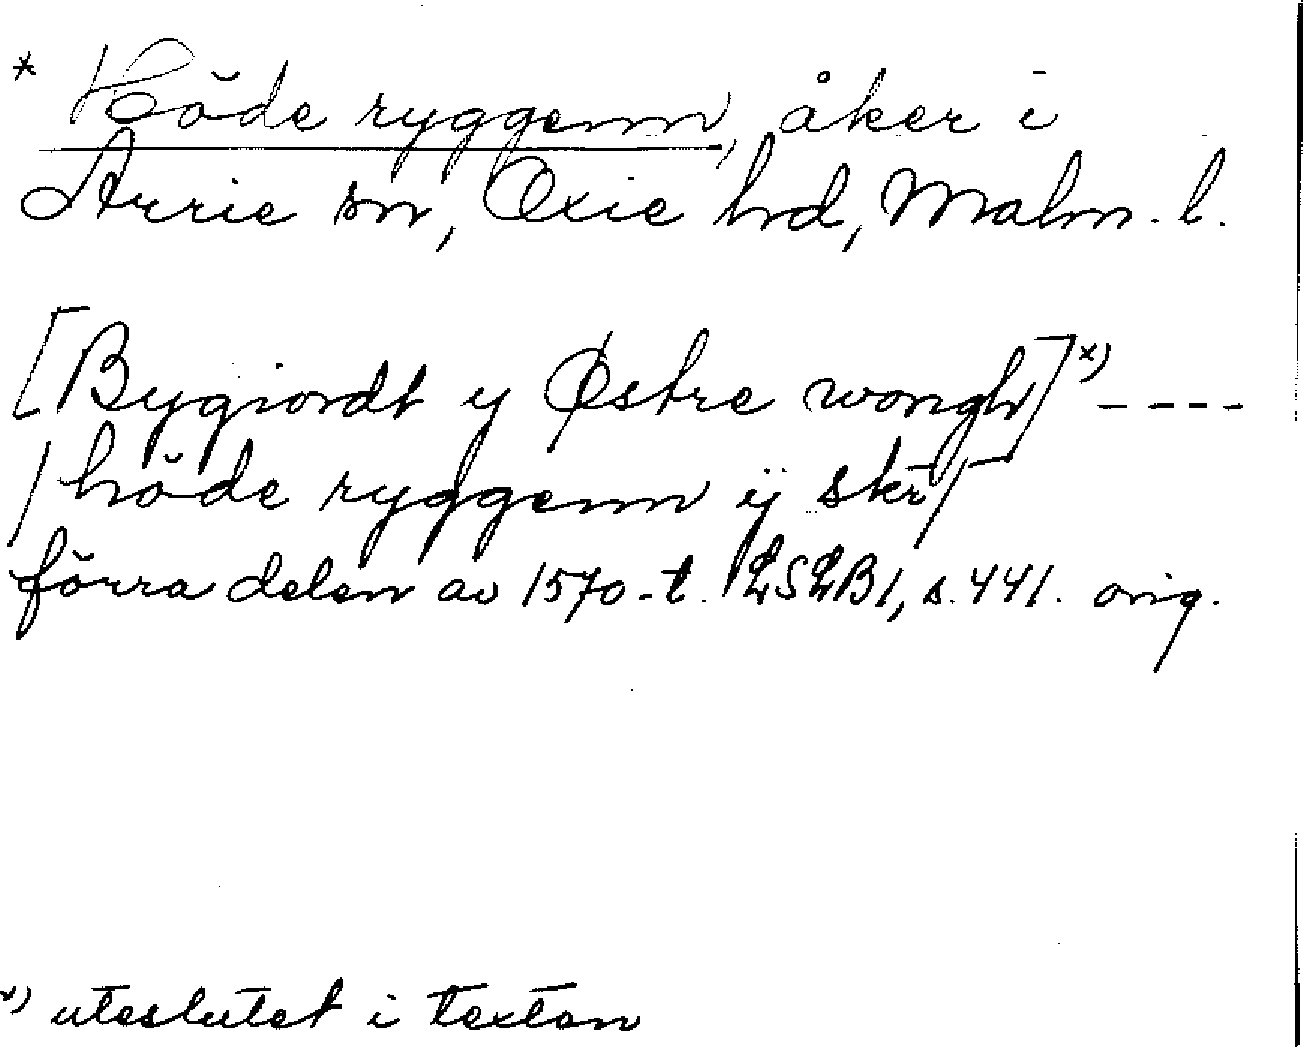 * Höde ryggenn, åker i
Arrie sn, Oxie hrd, Malm. l.
[Bygiordt y Østre wongh] x) ----
/ höde ryggenn ij skr /
förra delen av 1570-t. LSLB1, s. 441. orig.
x) uteslutet i texten